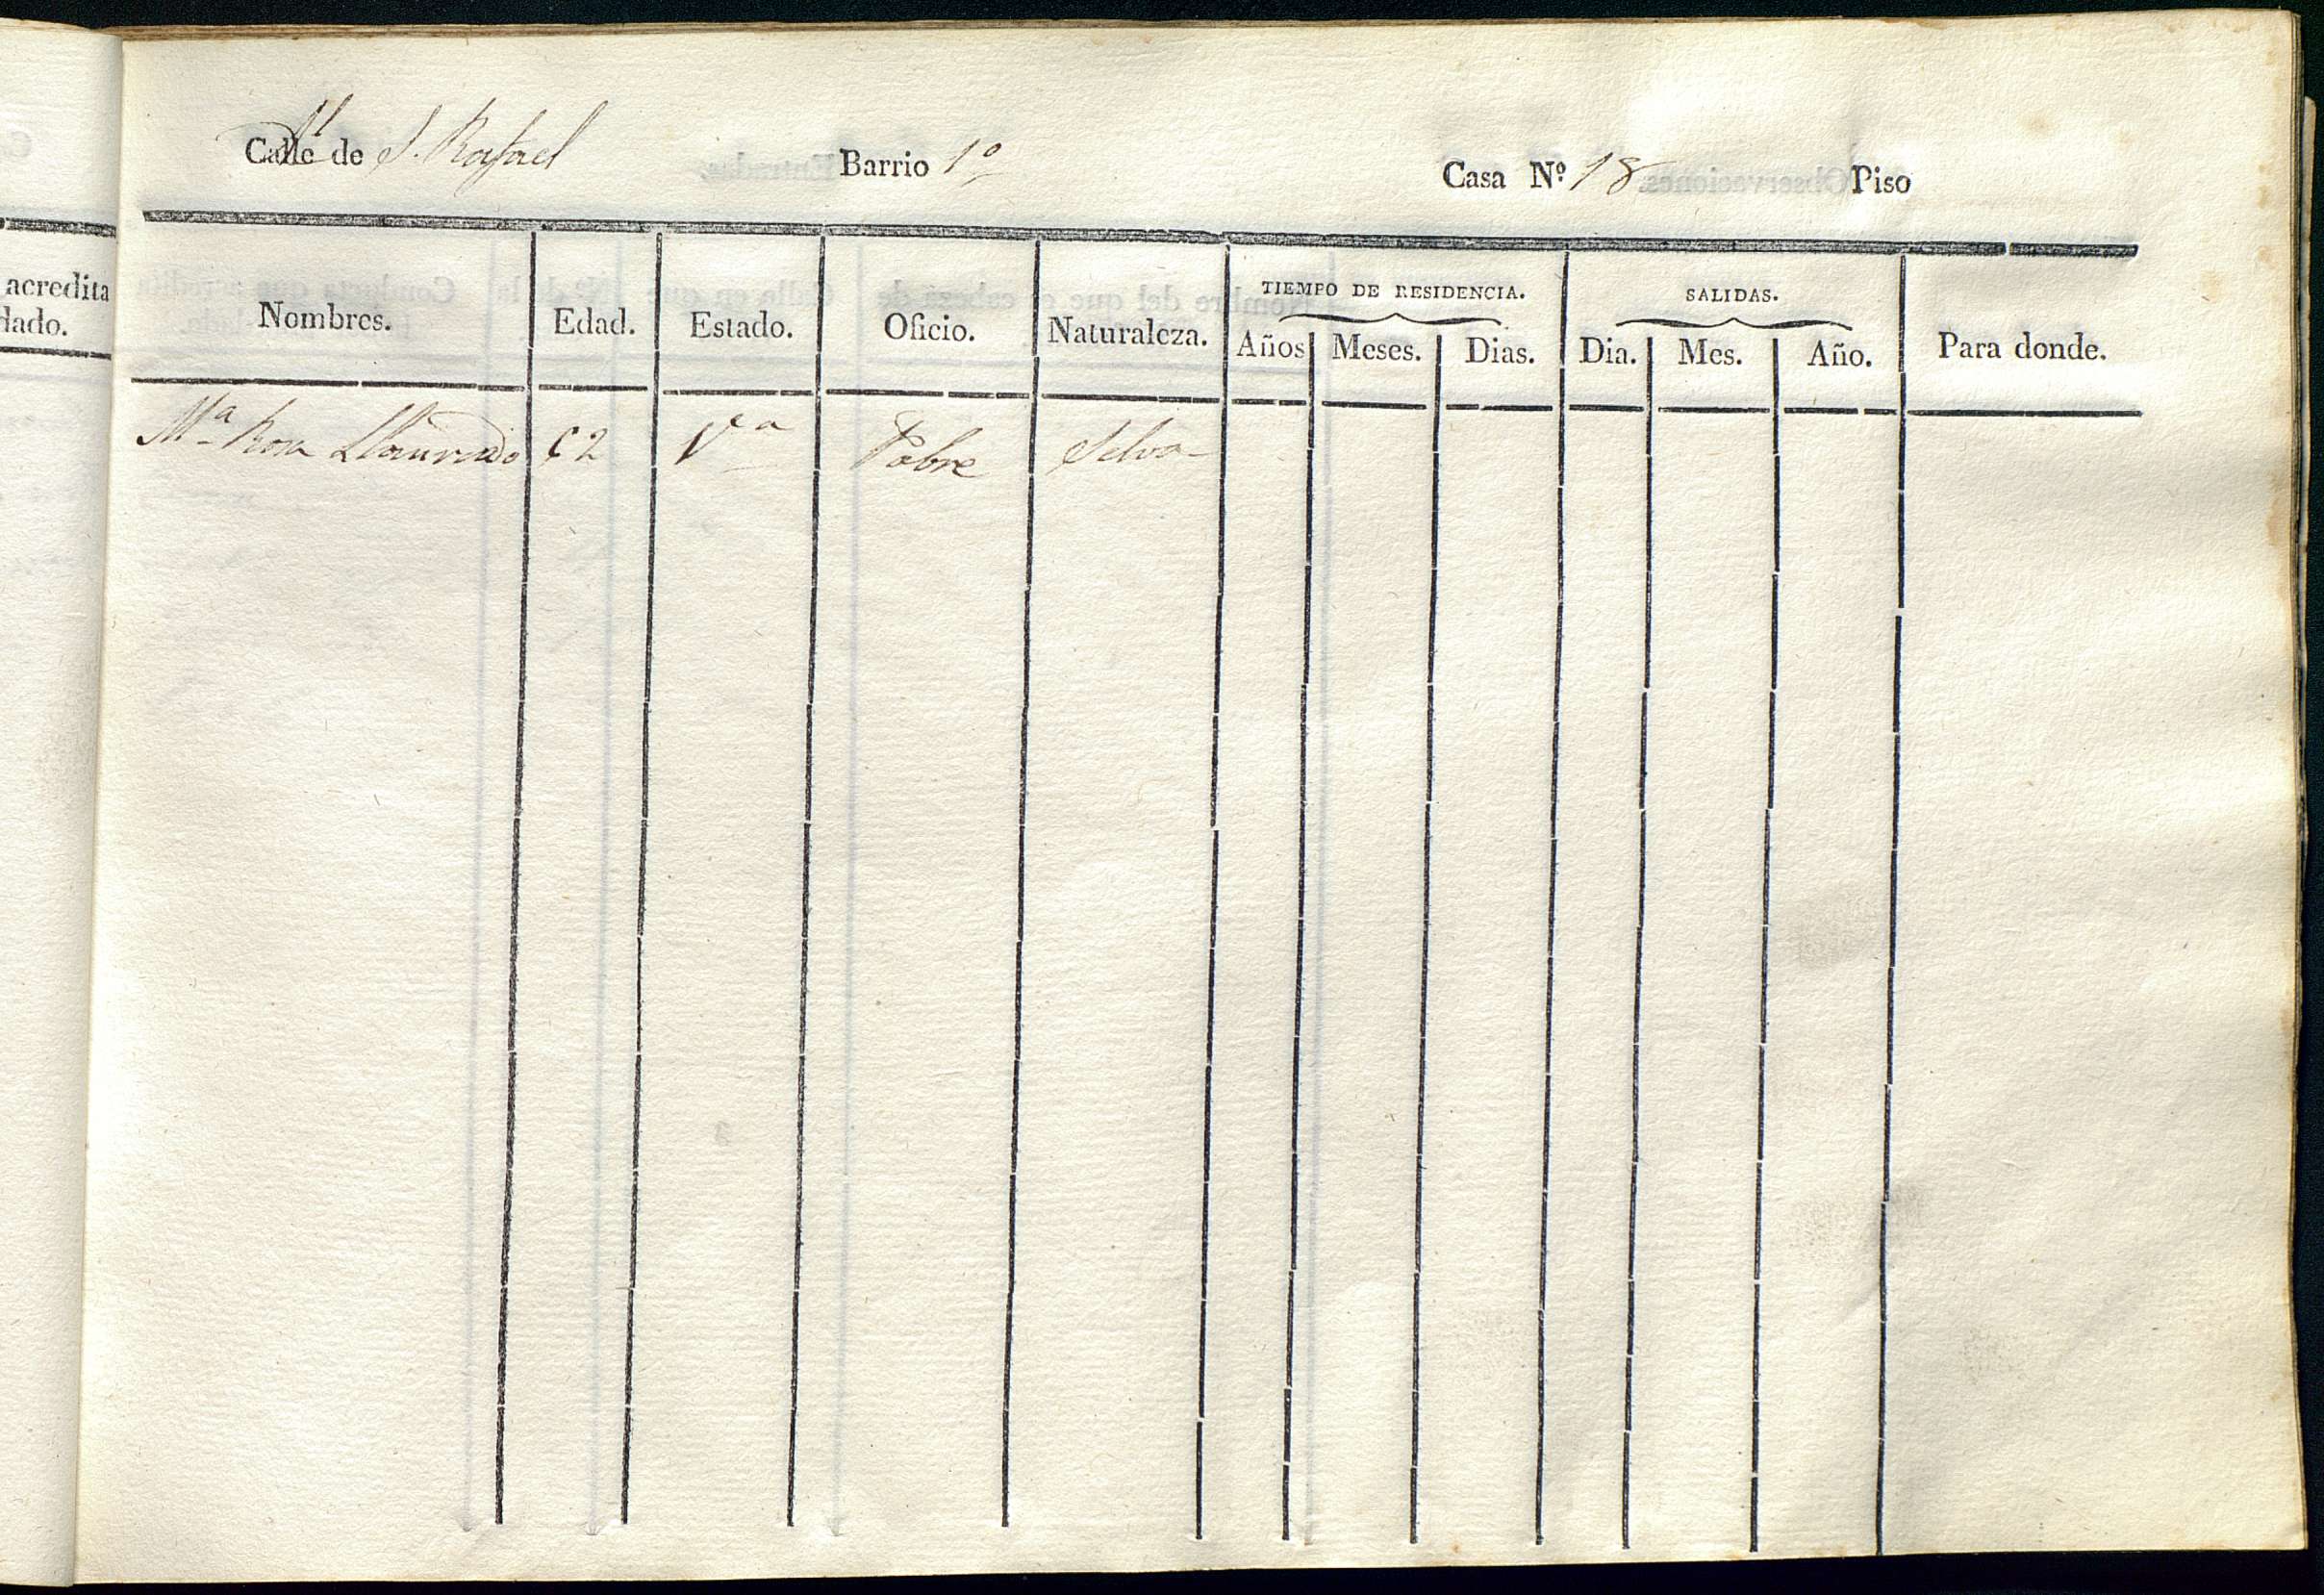 Calle de S. Rafael Barrio 1º Casa Nº 18 Piso
acredita
dado.
TIEMPO DE RESIDENCIA. SALIDAS.
Nombres. Edad. Estado. Oficio. Naturaleza. Años Meses. Dias. Dia. Mes. Año. Para donde.
Mª Rosa Llaurado 62 Vª Pobre Selva